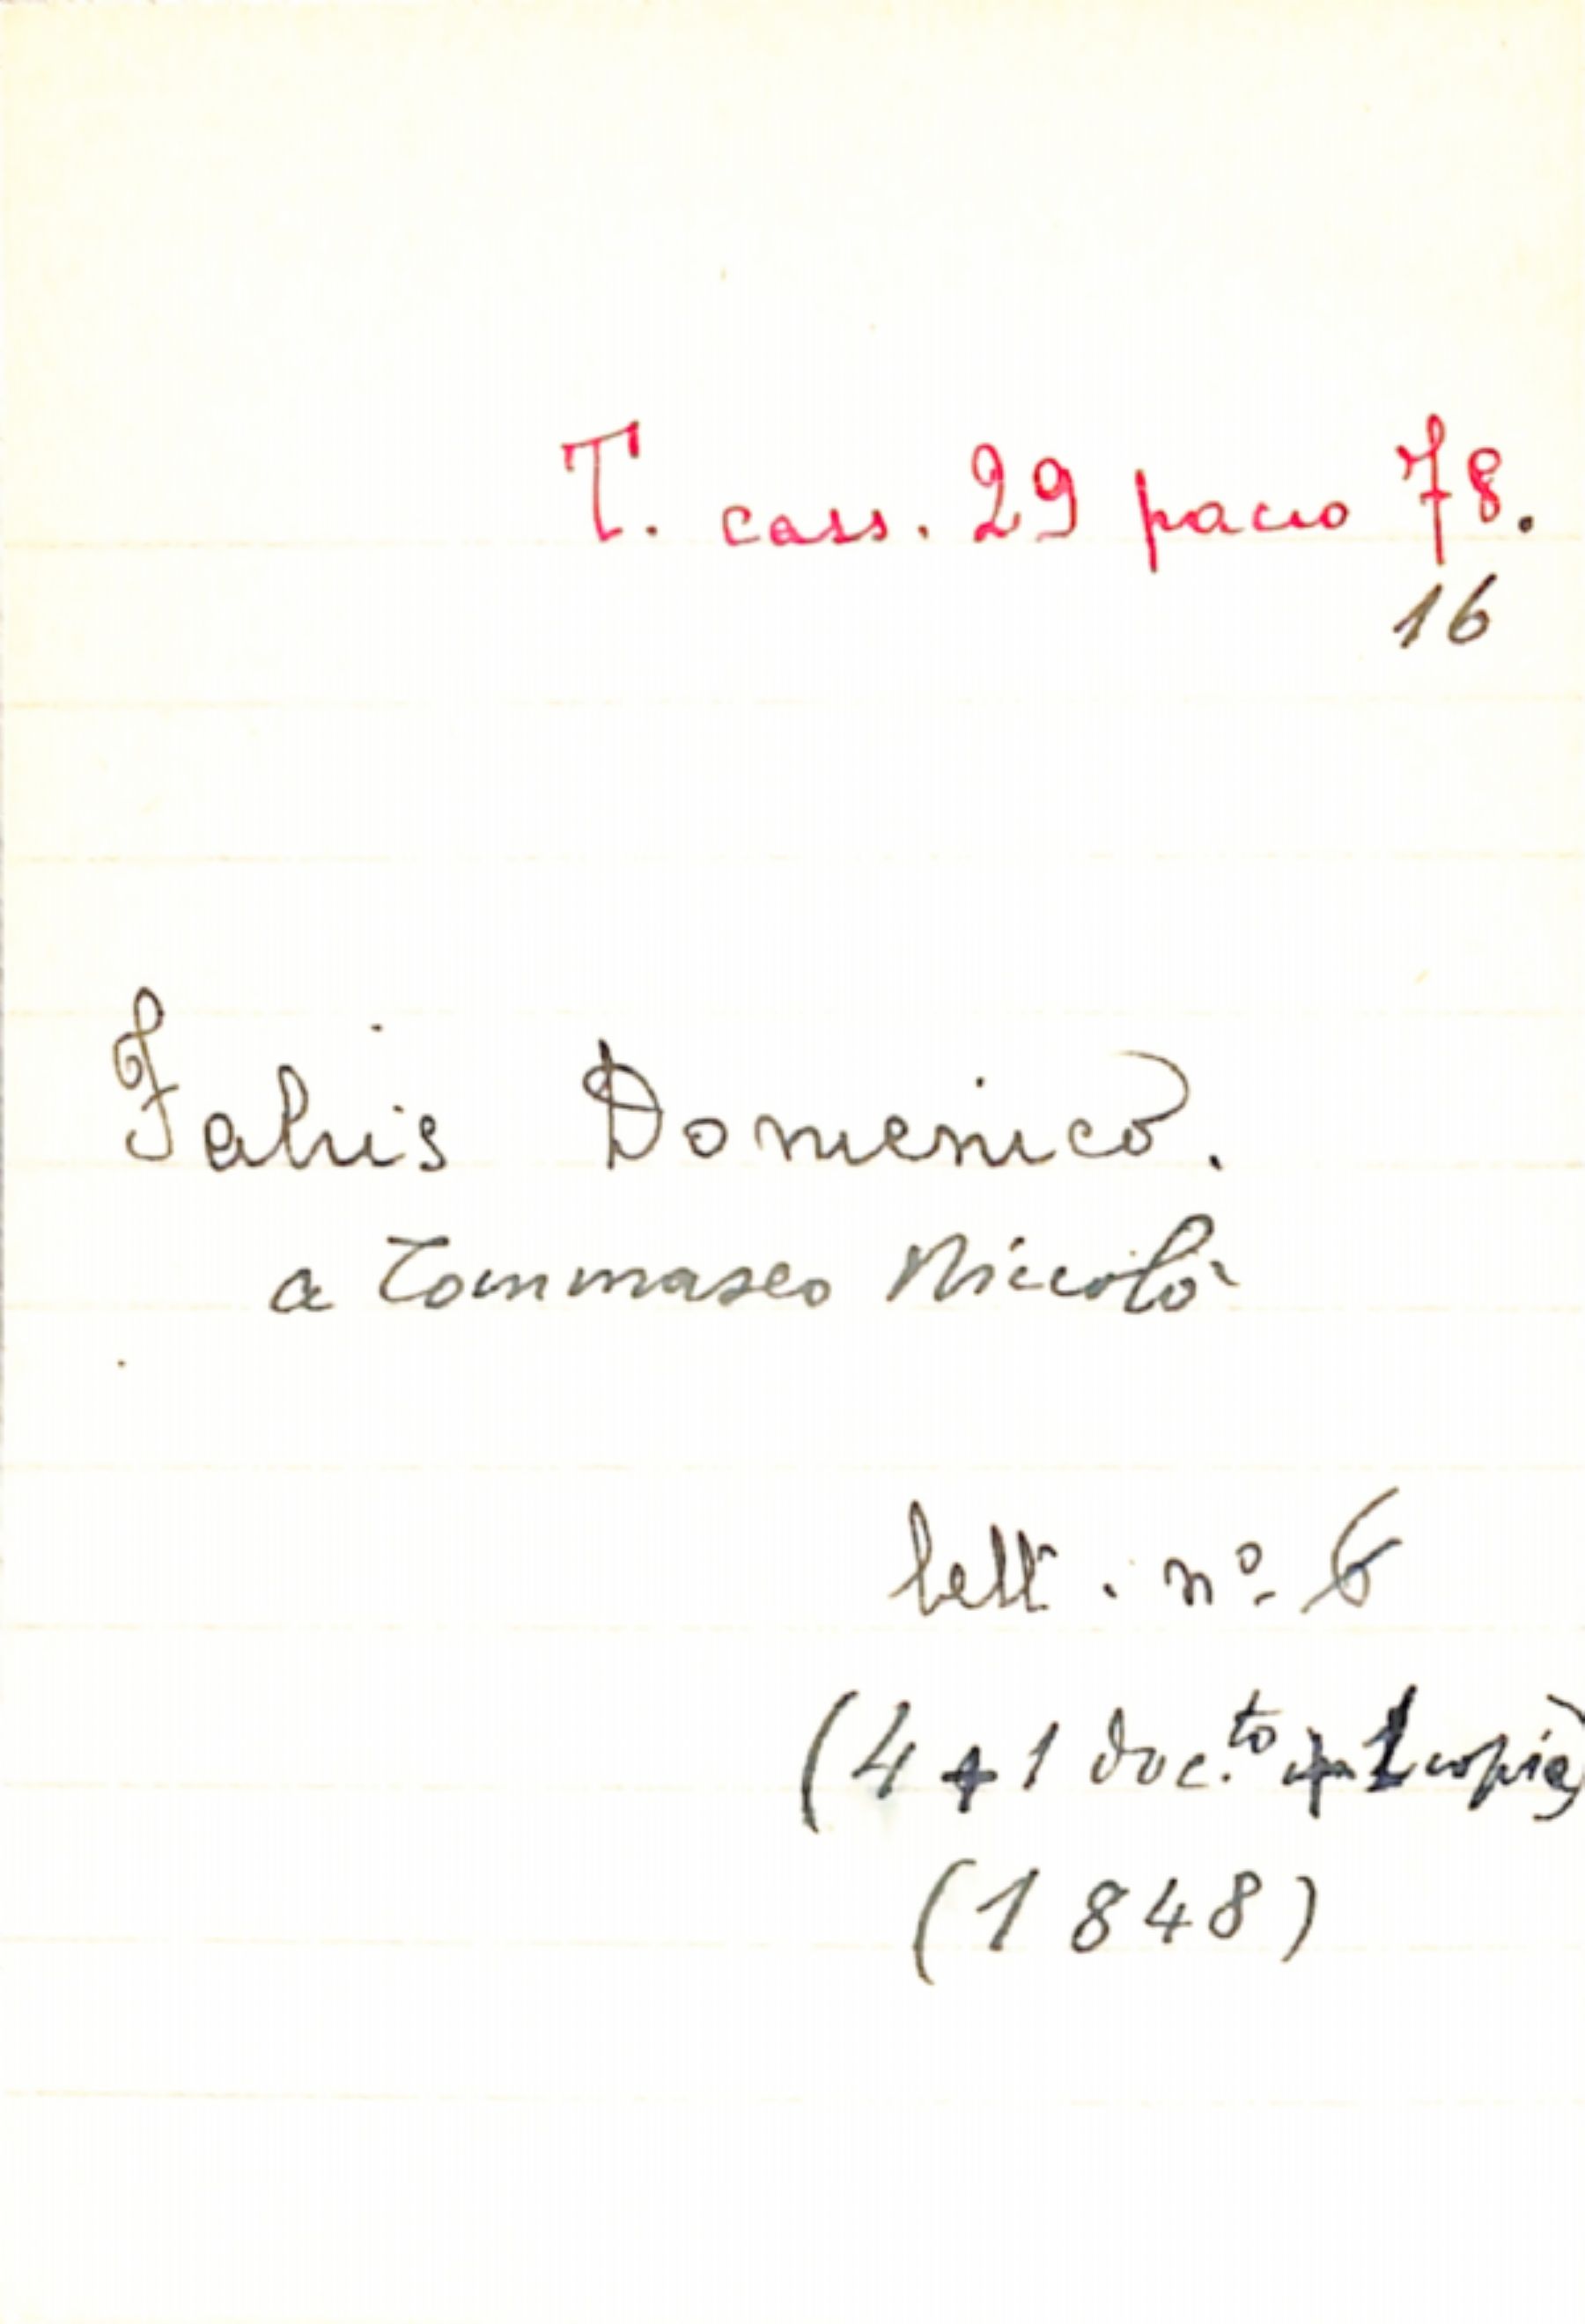 T. cass. 29 pacco 78.
16
Fabris Domenico.
a Tommaseo Niccolò
lett. nº 6
(4 + 1 doc.to in 1 copia)
(1848)